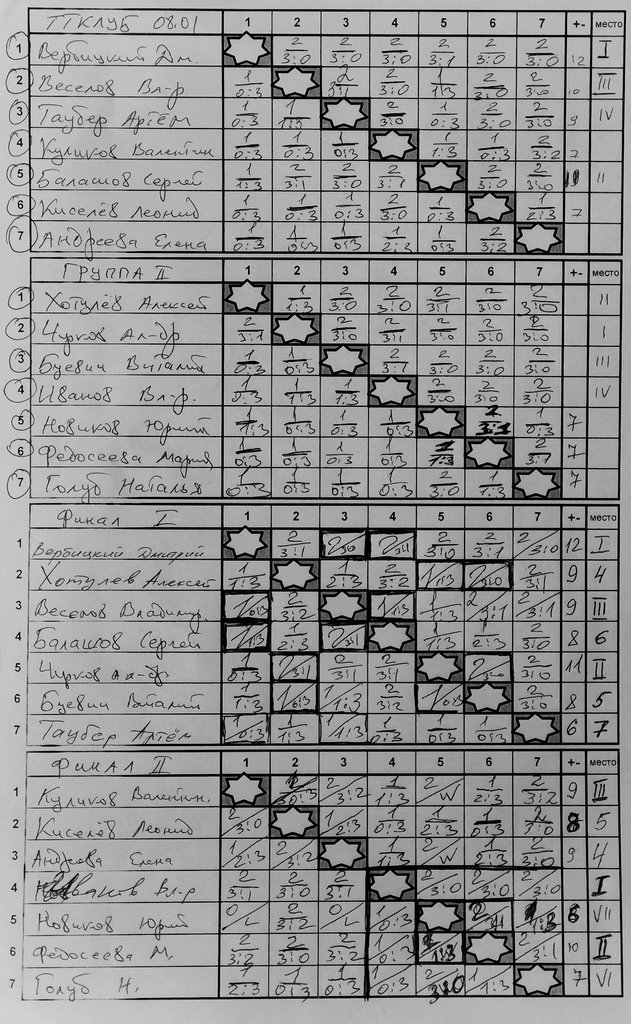 ТТКЛУБ 08.01 1 2 3 4 5 6 7 +- место
1 Вербицкий Дм. 2 3:0 2 3:0 2 3:0 2 3:1 2 3:0 2 3:0 12 I
2 Веселов Вл-р 1 0:3 2 3:1 2 3:0 1 1:3 2 3:0 2 3:0 10 III
3 Таубер Артём 1 0:3 1 1:3 2 3:0 1 0:3 2 3:0 2 3:0 9 IV
4 Куликов Валентин 1 0:3 1 0:3 1 0:3 1 1:3 1 0:3 2 3:2 7
5 Балашов Сергей 1 1:3 2 3:1 2 3:0 2 3:1 2 3:0 2 3:0 II
6 Киселёв Леонид 1 0:3 1 0:3 1 0:3 2 3:0 1 0:3 1 2:3 7
7 Андреева Елена 1 0:3 1 0:3 1 0:3 1 2:3 1 0:3 2 3:2
ГРУППА II 1 2 3 4 5 6 7 +- место
1 Хотулёв Алексей 1 1:3 2 3:0 2 3:0 2 3:1 2 3:0 2 3:0 II
2 Чурков Ал-др 2 3:1 2 3:0 2 3:1 2 3:0 2 3:0 2 3:0 I
3 Буевич Виталий 1 0:3 1 0:3 2 3:1 2 3:0 2 3:0 2 3:0 III
4 Иванов Вл-р. 1 0:3 1 1:3 1 1:3 2 3:0 2 3:0 2 3:0 IV
5 Новиков Юрий 1 1:3 1 0:3 1 0:3 1 0:3 2 3:1 1 0:3 7
6 Федосеева Мария 1 0:3 1 0:3 1 0:3 1 0:3 1 1:3 2 3:1 7
7 Голуб Наталья 1 0:3 1 0:3 1 0:3 1 0:3 2 3:0 1 1:3 7
Финал I 1 2 3 4 5 6 7 +- место
1 Вербицкий Дмитрий 2 3:1 2/3:0 2/3:1 2 3:0 2 3:1 2/3:0 12 I
2 Хотулев Алексей 1 1:3 1 2:3 2 3:2 1/1:3 2/3:0 2 3:1 9 4
3 Веселов Владимир. 1/0:3 2 3:2 1/1:3 1 1:3 2/3:1 2/3:1 9 III
4 Балашов Сергей 1/1:3 1 2:3 2/3:1 1 1:3 1 2:3 2 3:0 8 6
5 Чурков Ал-др 1 0:3 2/3:1 2 3:1 2 3:1 2/3:0 2 3:0 11 II
6 Буевич Виталий 1 1:3 1/0:3 1/1:3 2 3:2 1/0:3 2 3:0 8 5
7 Таубер Артём 1/0:3 1 1:3 1/1:3 1 0:3 1 0:3 1 0:3 6 7
ФИНАЛ II 1 2 3 4 5 6 7 +- место
1 Куликов Валентин. 0:3 2/3:2 1 1:3 2/W 1 2:3 2 3:2 9 III
2 Киселёв Леонид 2/3:0 1/2:3 1 0:3 1 2:3 1 0:3 2 5
3 Андреева Елена 1/2:3 2/3:2 1 1:3 2/W 1 2:3 2 3:0 9 4
4 Иванов Вл-р 2 3:1 2 3:0 2 3:1 2/3:0 2/3:0 2/3:0 I
5 Новиков Юрий 0/L 2 3:2 0/L 1 0:3 2/3:1 1:3 VII
6 Федосеева М. 2 3:2 2 3:0 2 3:2 1 0:3 1:3 2/3:1 10 II
7 Голуб Н. 1 2:3 1 0:3 1 0:3 1/0:3 2 3:0 1/1:3 7 VI